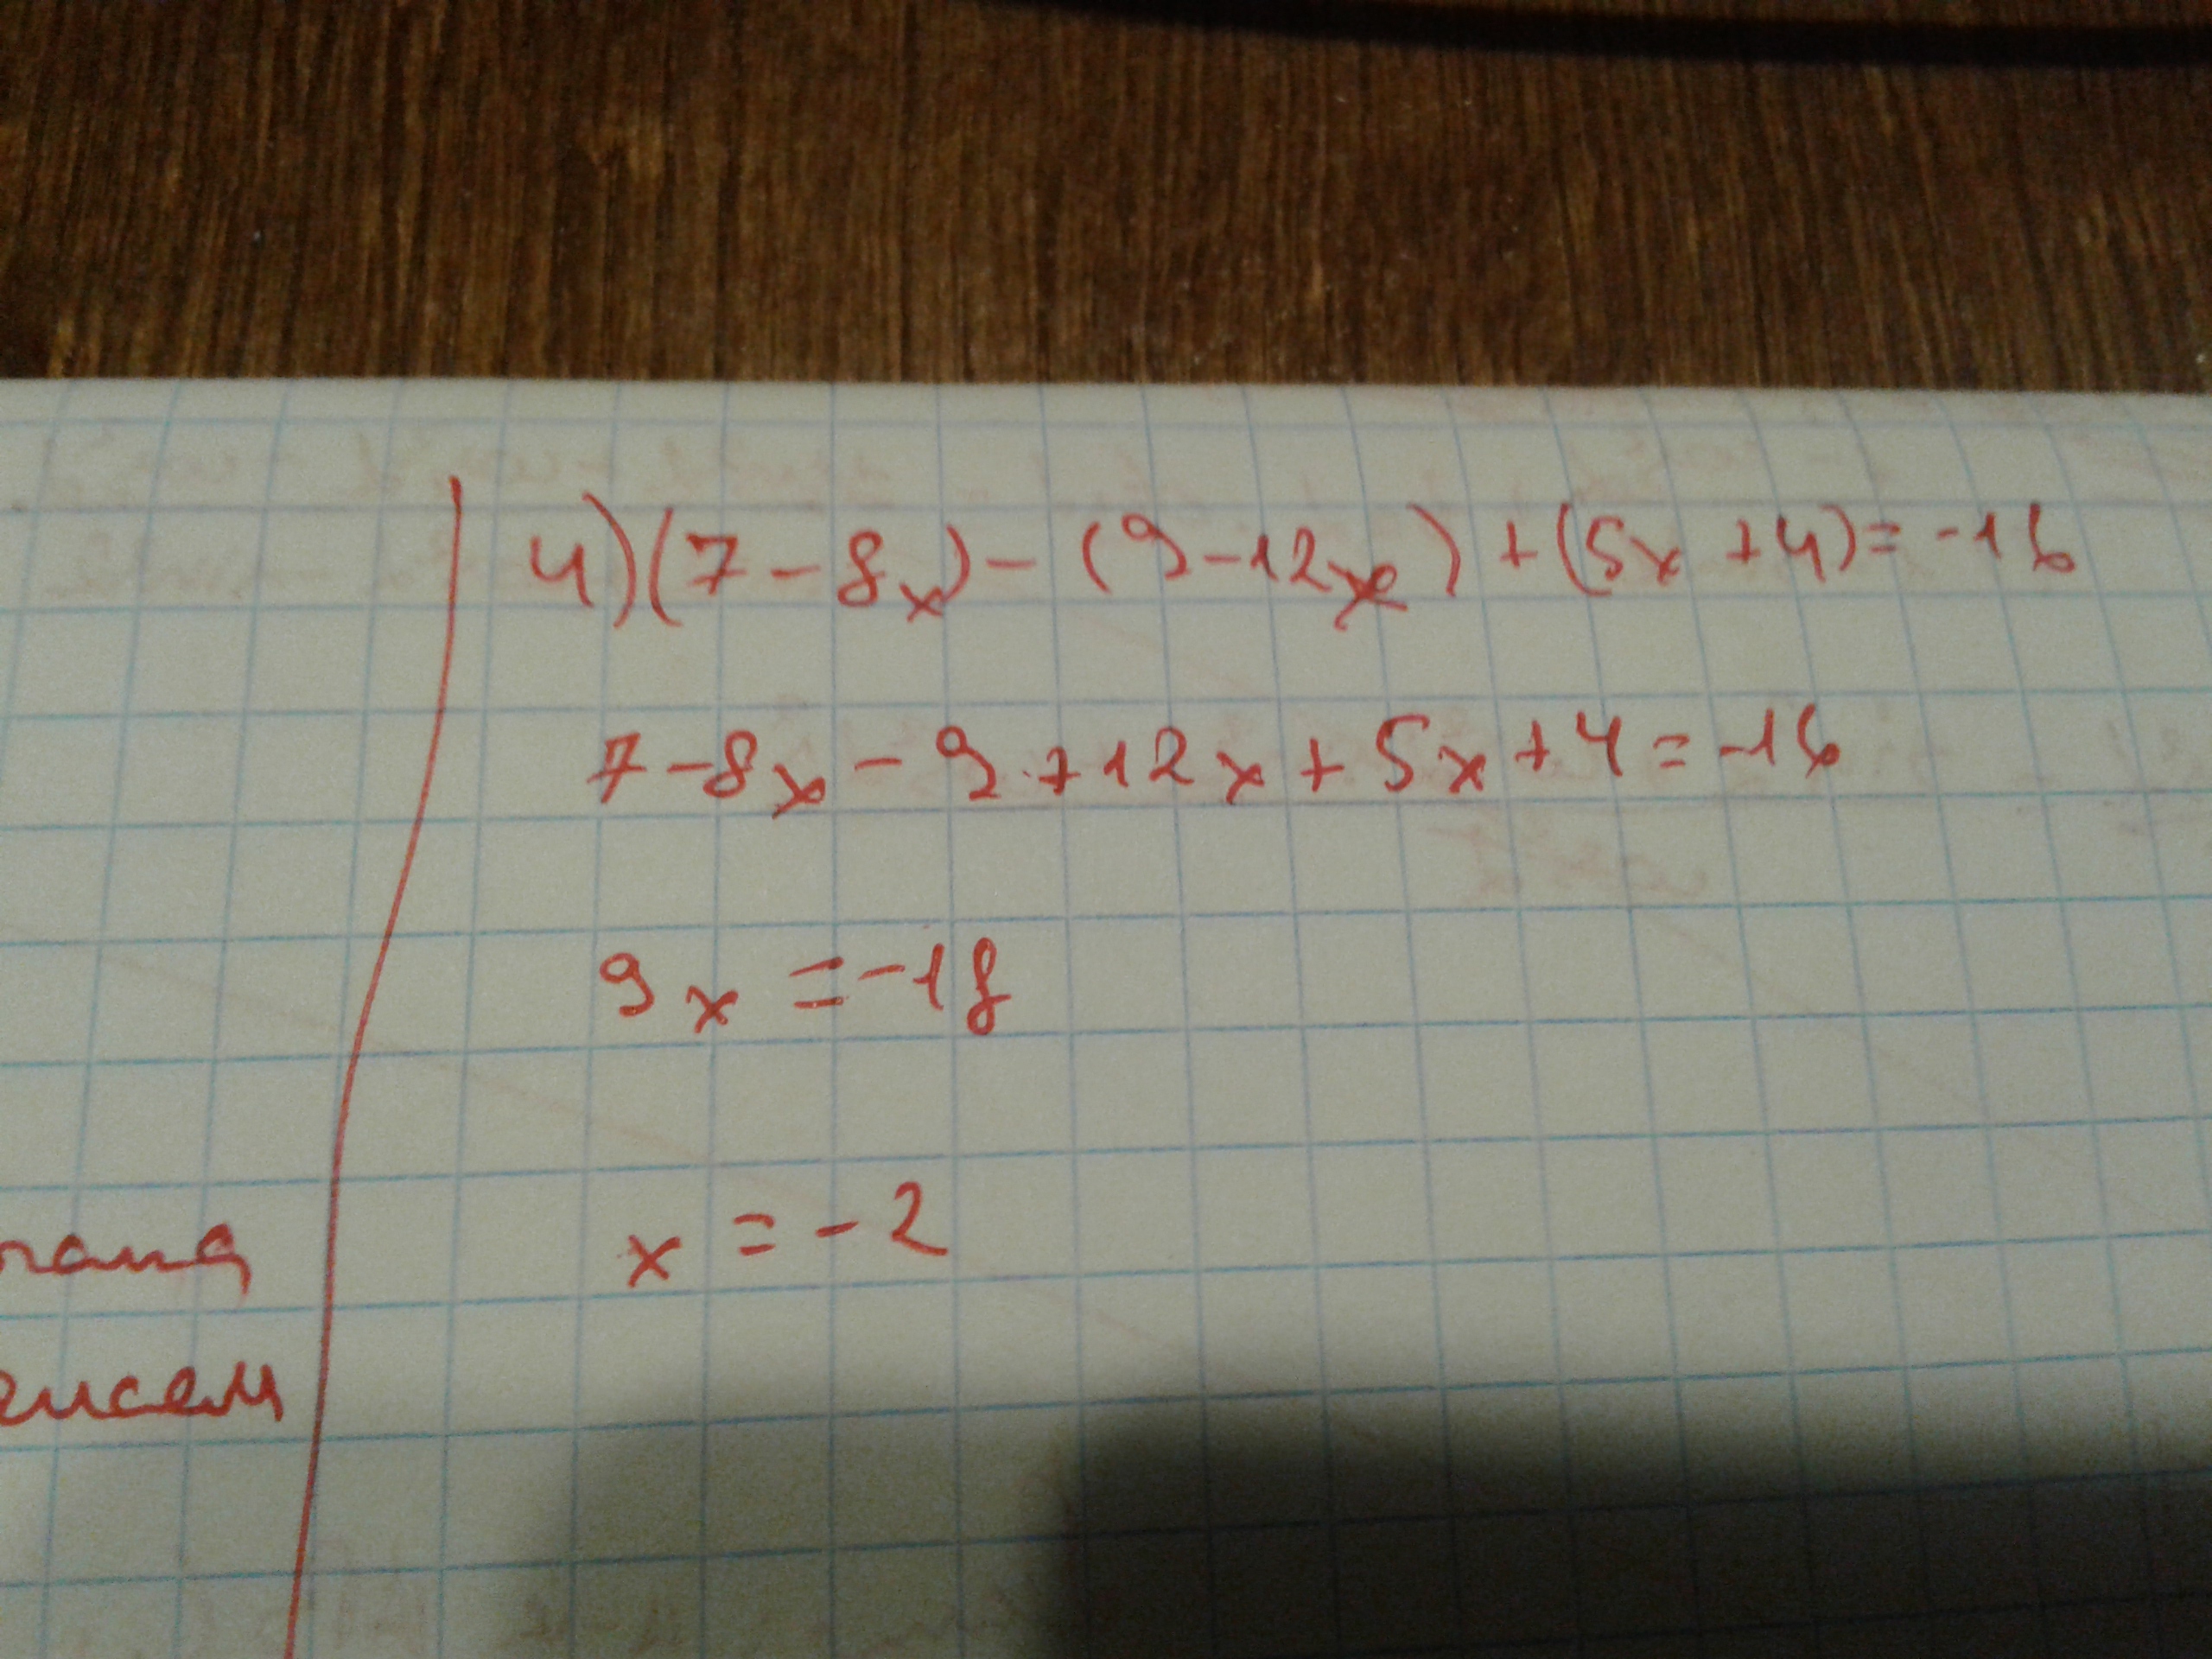 4) (7 - 8x) - (9 - 12x) + (5x + 4) = -16
7 - 8x - 9 + 12x + 5x + 4 = -16
9x = -18
x = -2